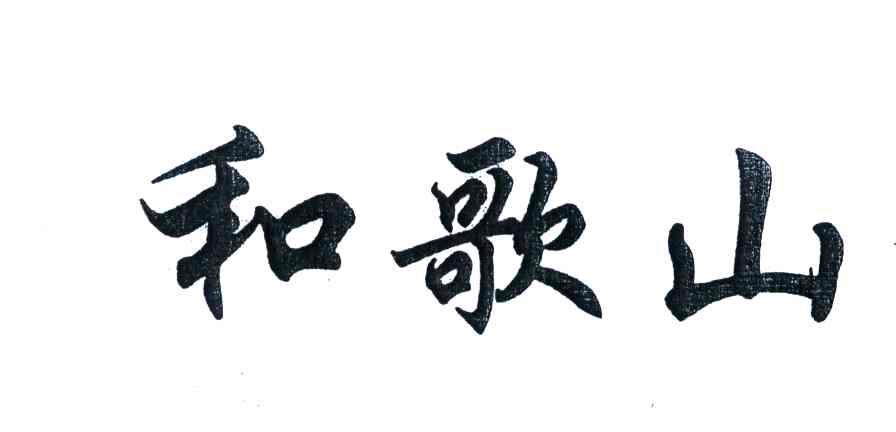 和歌山